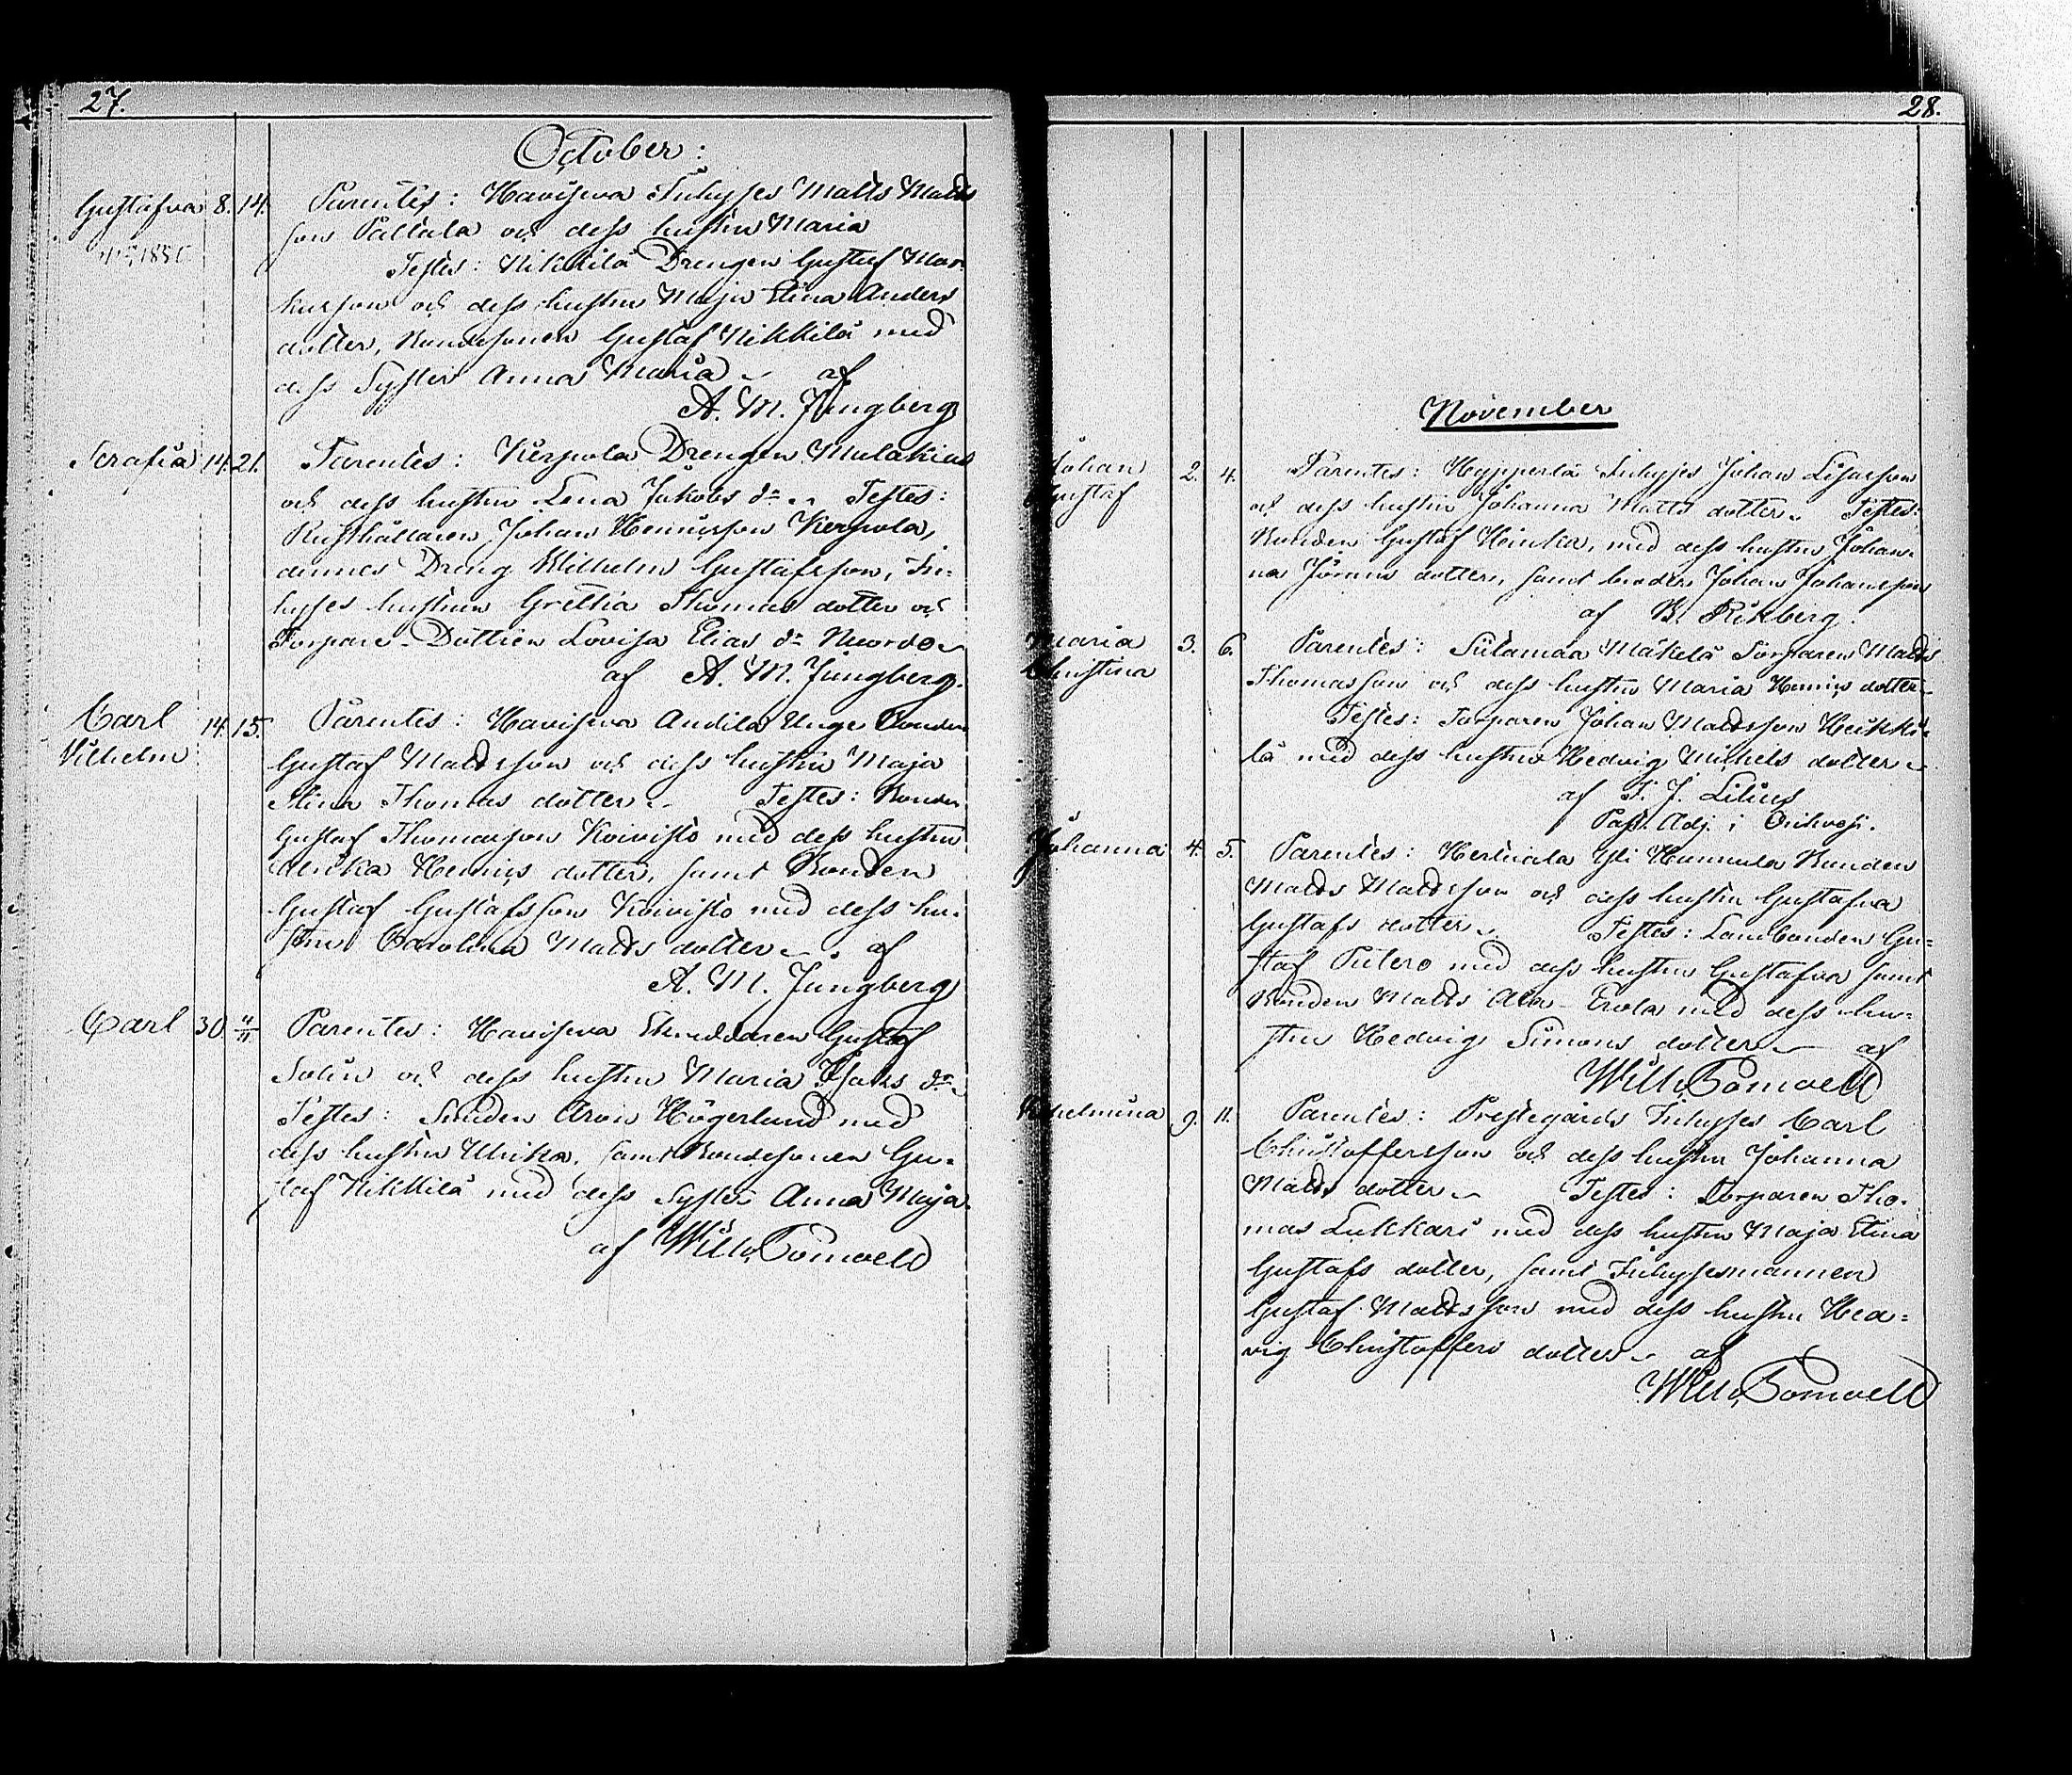 27.
October:
Gustafva 8. 14. Parentes: Haviseva Inhyses Matts Matts
son Pállala och dess hustru Maria
Testes: Nikkilä Drengen Gustaf Mar-
kusson och dess hustru Maja Stina Anders
dotter, Bondesonen Gustaf Nikkilä med
dess Syster Anna Maria af
A. M. Jungberg
Serafia 14. 21. Parentes: Kerppola Drengen Malakias
och dess hustru Lena Jakobs dr. Testes:
Rusthållaren Johan Henricsson Kerppola,
dennes Dreng Wilhelm Gustafsson, In-
hyses hustrun Gretha Thomas dotter och
Torpare Dottren Lovisa Elias dr
af A. M. Jungberg.
Carl 14. 15. Parentes: Havisewa Andila Unge Bonden
Vilhelm Gustaf Mattsson och dess hustru Maja
Stina Thomas dotter. Testes: Bonden
Gustaf Thomasson Koivisto med dess hustru
Ulrika Henrics dotter, samt Bonden
Gustaf Gustafsson Koivisto med dess hu-
stru Carolina Matts dotter. af
A. M. Jungberg
Carl 30. 4/11 Parentes: Havisewa Skräddaren Gustaf
Solin och dess hustru Maria Isaks dr
Testes: Smeden Aron Högerlund med
dess hustru Ulrika, samt Bondesonen Gu-
staf Nikkilä med dess Syster Anna Maja.
af Wilh.
28.
November
Johan 2. 4. Parentes: Hypperlä Inhyses Johan
Gustaf och dess hustru Johanna Matts dotter. Testes:
Bonden Gustaf Heinka, med dess hustru Johan-
na Jörans dotter, samt Johan Johansson
af
Maria 3. 6. Parentes: Mäkelä Torparen Matts
Christina Thomasson och dess hustru Maria Henrics dotter
Testes: Torparen Johan Mattsson Heikki-
lä med dess hustru Hedvig Michels dotter
af T. J. Lilius
Past. Adj. i Orihvesi.
Johanna 4. 5. Parentes: Hertuala Yli Hannula Bonden
Matts Mattsson och dess hustru Gustafva
Gustafs dotter. Testes: Landbonden Gu-
staf med dess hustru Gustafva samt
Bonden Matts Ala- Erola med dess hu-
stru Hedvig Simons dotter af
Wilh.
9. 11. Parentes: Prestegårds Inhyses Carl
Christoffersson och dess hustru Johanna
Matts dotter Testes: Torparen Tho-
mas Lukkari med dess hustru Maja Stina
Gustafs dotter, samt Inhysesmannen
Gustaf Mattsson med dess hustru Hed-
vig Christoffers dotter af
Wilh.